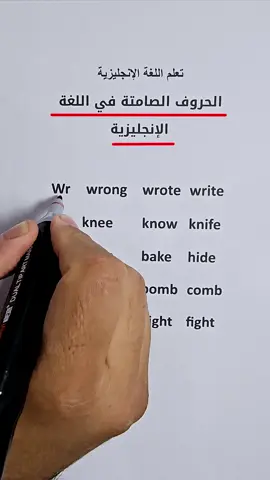 تعلم اللغة الإنجليزية
الحروف الصامتة في اللغة
الإنجليزية
Wr wrong wrote write
knee know knife
bake hide
comb
fight